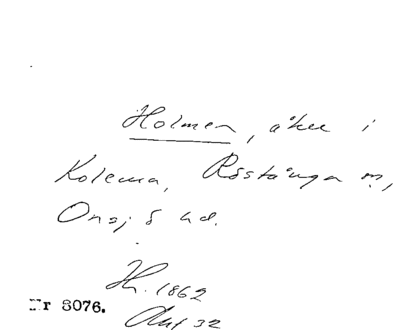 Holmen, åker i
Kolema, Röstånga sn,
Onsjö hd.
Hh. 1862
Nr 3076.
Akt 32